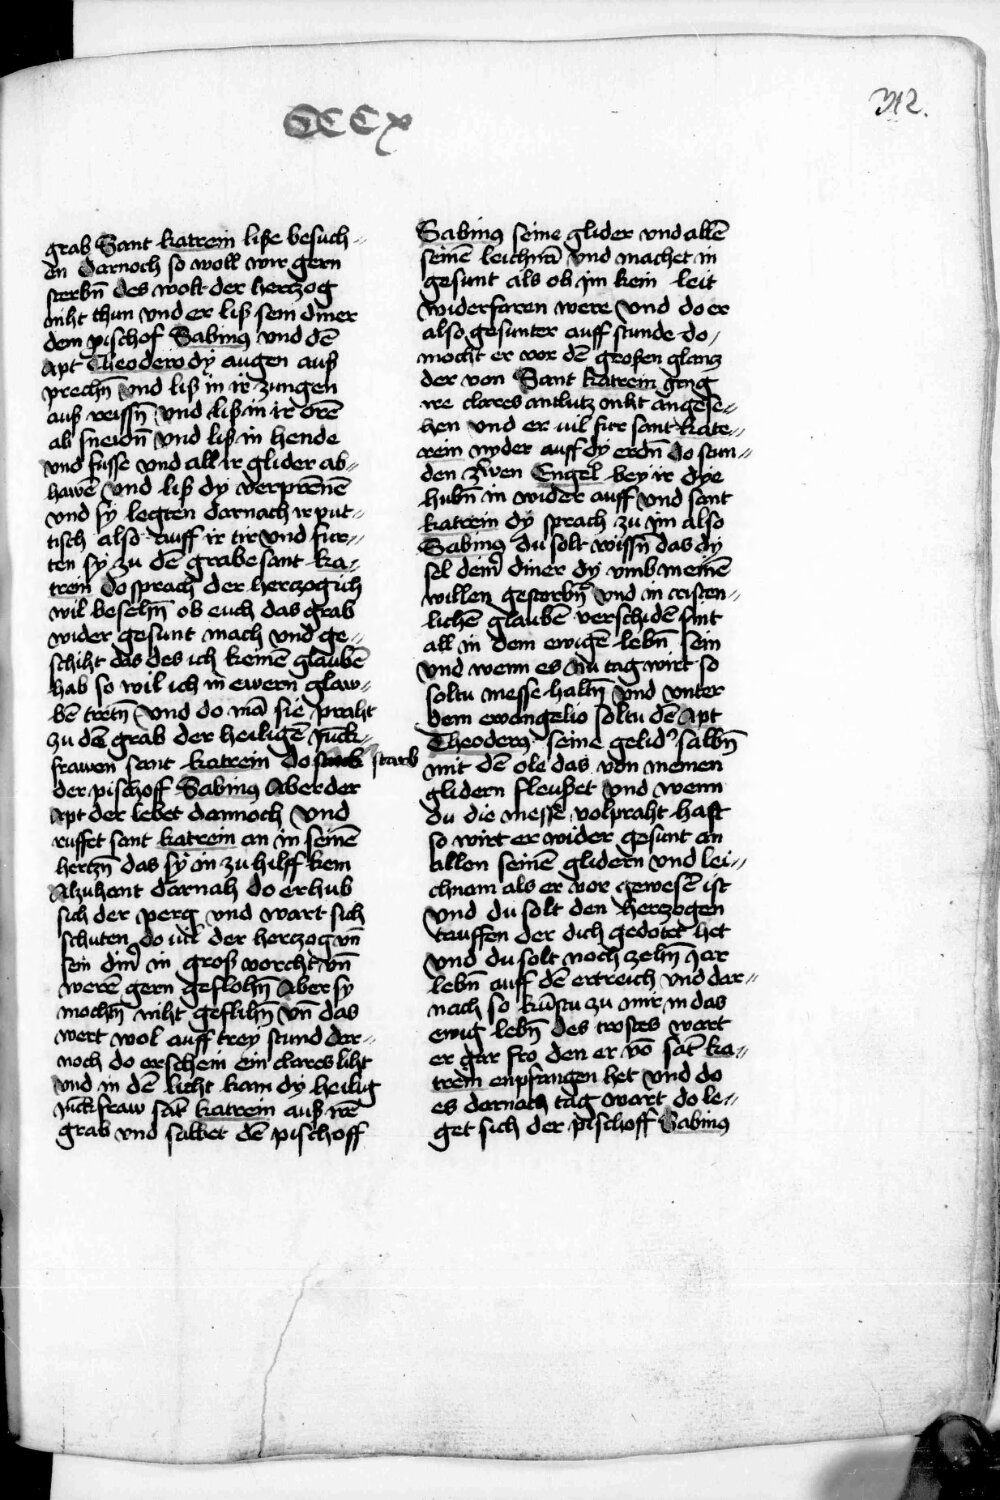 CCCX
312.
grab Sant katrein liße besuch⸗
en darnoch so woll wir gern
sterbn̄ des wolt der herczog
niht thun vnd er liß sein diner
dem pischof Sabinus vnd dē
apt Theodero dy augen auß
prechn̄ vnd liß in ir zungen
auß reissn̄ vnd liß in ir orē
ab sneidn̄ vnd liß in hende
vnd fusse vnd all ir glider ab⸗
hawē vnd liß dy verprēnē
vnd sy legten darnach ir put⸗
tisch also auff ir tir vnd fur⸗
ten sy zu dē grabe sant ka⸗
trein do sprach der herczog ich
wil besehn̄ ob euch das grab
wider gesunt mach vnd ge⸗
schiht das des ich keinē glaubē
hab so wil ich in ewern glaw⸗
bē tretn̄ vnd do mā sie praht
zu dē grab der heiligē Juck⸗
frawen sant katrein do starb
der pischoff Sabinus Aber der
apt der lebet dannoch vnd
ruffet sant katrein an in seinē
herczn̄ das sy im zu hilff kem
Alzuhant darnah do erhub
sich der perg vnd wart sich
schuten do vil der herczog vn̄
sein din̄ in groß vorcht vn̄
werē gern geflohn̄ Aber sy
mochtn̄ niht geflihn̄ vn̄ das
wert wol auff trey stund dar⸗
noch do erschein ein clares liht
vnd in dē licht kam dy heilig
Juckfraw sāt katrein auß irē
grab vnd salbet dē pischoff
Sabinus seine glider vnd allē
seinē leichnā vnd machet in
gesunt als ob jm kein leit
widerfaren were vnd do er
also gesunter auff stunde do
mocht er vor dē großen glancz
der von Sant katrein ging
ire clares antlutz niht angese⸗
hen vnd er vil fur sant kate⸗
rein nyder auff dy erdn̄ do stun⸗
den zwen Engel bey ir dye
hubn̄ in wider auff vnd sant
katrein dy sprach zu jm also
Sabinus du solt wissn̄ das dy
sel deiner diner dy vmb meinē
willen gestorbn̄ vnd in cristen⸗
lichē glaubē verschidē sint
all in dem ewigē lebn̄ sein
vnd wenn es nu tag wirt so
soltu messe haltn̄ vnd vnter
dem ewangelio soltu dē Apt
Theoderus seine gelider salbn̄
mit dē ole das von meinen
glidern fleußet vnd wenn
du die messe volpraht hast
so wirt er wider gesunt an
allen seinē glidern vnd lei⸗
chnam als er vor gewesē ist
vnd du solt den herczogen
tauffen der dich gedotet het
vnd du solt noch zehn̄ Jar
lebn̄ auff dē ertreich vnd dar⸗
nach so kūstu zu mir in das
ewig lebn̄ des trostes wart
er gar fro den er vō sāt ka⸗
trein enpfangen het vnd do
es darnach tag wart do le⸗
get sich der pischoff Sabinus